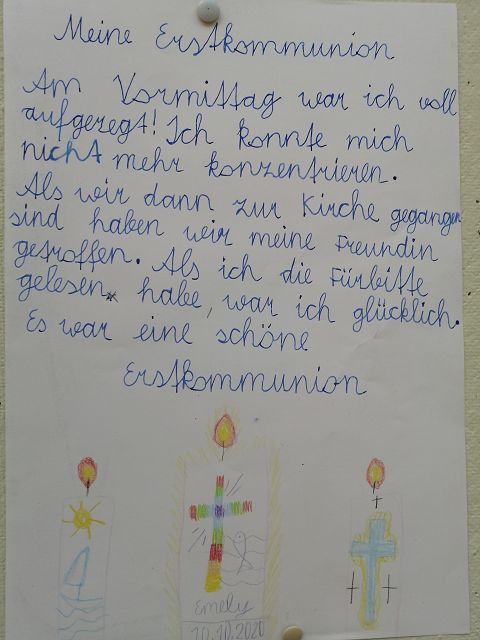 Meine Erstkommunion
Am Vormittag war ich voll
aufgeregt! Ich konnte mich
nicht mehr konzentrieren.
Als wir dann zur Kirche gegangen
sind haben wir meine Freundin
getroffen. Als ich die Fürbitte
gelesen habe, war ich glücklich.
Es war eine schöne
Erstkommunion
Emely
10.10.2020